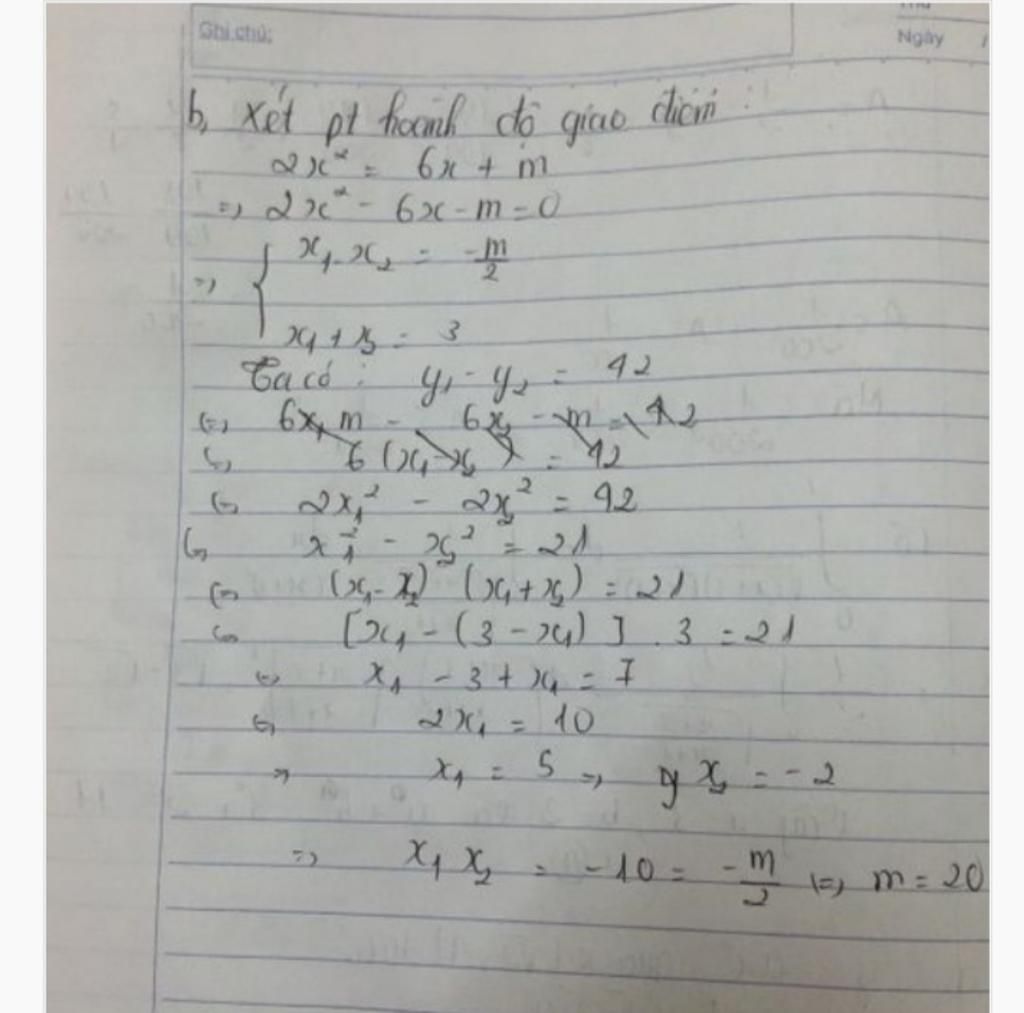 Ghi chú:
Ngày /
b, Xét pt hoành độ giao điểm :
2x² = 6x + m
=> 2x² - 6x - m = 0
=> { x₁.x₂ = -m/2
x₁ + x₂ = 3
Ta có : y₁ - y₂ = 42
<=> 6x₁ m - 6x₂ - m = 42
<=> 6 (x₁ - x₂) = 42
<=> 2x₁² - 2x₂² = 42
<=> x₁² - x₂² = 21
<=> (x₁ - x₂) (x₁ + x₂) = 21
<=> [x₁ - (3 - x₁)] . 3 = 21
<=> x₁ - 3 + x₁ = 7
<=> 2x₁ = 10
=> x₁ = 5 => y x₂ = -2
=> x₁ x₂ = -10 = -m/2 <=> m = 20